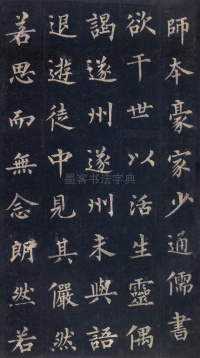 師本豪家少通儒書
欲干世以活生靈偶
謁遂州遂州未與語
退遊徒中見其儼然
若思而無念朗然若
墨客书法字典